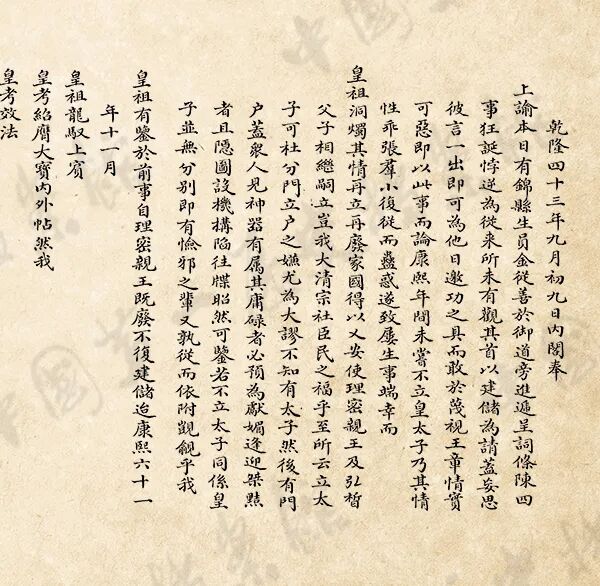 乾隆四十三年九月初九日內閣奉
上諭本日有錦縣生員金從善於御道旁進遞呈詞條陳四
事狂誕悖逆為從來所未有觀其首以建儲為請蓋妄思
彼言一出即可為他日邀功之具而敢於蔑視王章情實
可惡即以此事而論康熙年間未嘗不立皇太子乃其情
性乖張羣小復從而蠱惑遂致屢生事端幸而
皇祖洞燭其情再立再廢家國得以乂安使理密親王及弘晳
父子相繼嗣立豈我大清宗社臣民之福乎至所云立太
子可杜分門立户之嫌尤為大謬不知有太子然後有門
户蓋衆人見神器有属其庸碌者必預為獻媚逢迎桀黠
者且隱圖設機構陷往牒昭然可鑒若不立太子同係皇
子並無分别即有憸邪之輩又孰從而依附覬覦乎我
皇祖有鑒於前事自理密親王既廢不復建儲迨康熙六十一
年十一月
皇祖龍馭上賓
皇考紹膺大寶內外帖然我
皇考效法